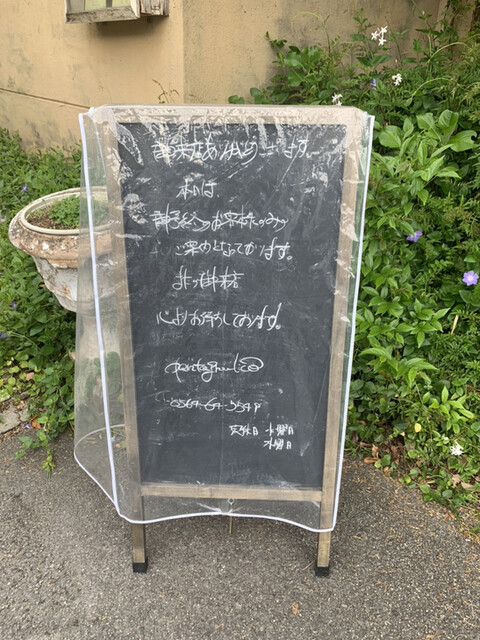 御来店ありがとうございます。
本日は、
御予約のお客様のみの
ご案内となっております。
またの御来店
心よりお待ちしております。
定休日 火曜日
水曜日